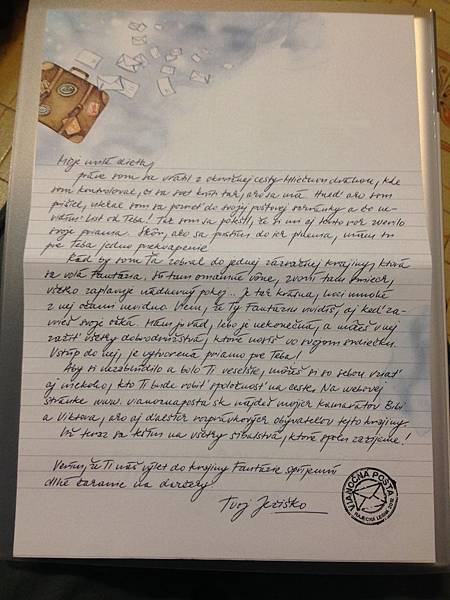 Moje milé dieťa,
práve som sa vrátil z okružnej cesty Mliečnou dráhou, kde
som kontroloval, či sa svet krúti tak, ako sa má. Hneď ako som
prišiel, utekal som sa pozrieť do svojej poštovej schránky a čo ne-
vidím! List od Teba! Tak som sa potešil, že si mi aj tento rok zveril
svoje prianie. Skôr, ako sa pustím do ich plnenia, mám tu
pre Teba jedno prekvapenie.
Rád by som Ťa zobral do jednej zázračnej krajiny, ktorá
sa volá Fantázia. Sú tam omamné vône, zvoní tam smiech,
všetko zaplavuje nádherný pokoj... Je tak krásna, hoci mnohé
z nej očami nevidno. Viem, že Ty Fantáziu uvidíš, aj keď za-
vrieš svoje očká. Mám ju rád, lebo je nekonečná, a môžeš v nej
zažiť všetky dobrodružstvá, ktoré nosíš vo svojom srdiečku.
Vstúp do nej, je vytvorená priamo pre Teba!
Aby si nezablúdilo a bolo Ti veselšie, môžeš si so sebou vziať
aj niekoho, kto Ti bude robiť spoločnosť na ceste. Na webovej
stránke www.vianocnaposta.sk nájdeš mojich kamarátov Bibi
a Viktora, ako aj ďalších rozprávkových obyvateľov tejto krajiny.
Už teraz sa teším na všetky šibalstvá, ktoré spolu zažijeme!
Verím, že Ti náš výlet do krajiny Fantázie spríjemní
dlhé čakanie na darčeky.
Tvoj Ježiško
VIANOČNÁ POŠTA